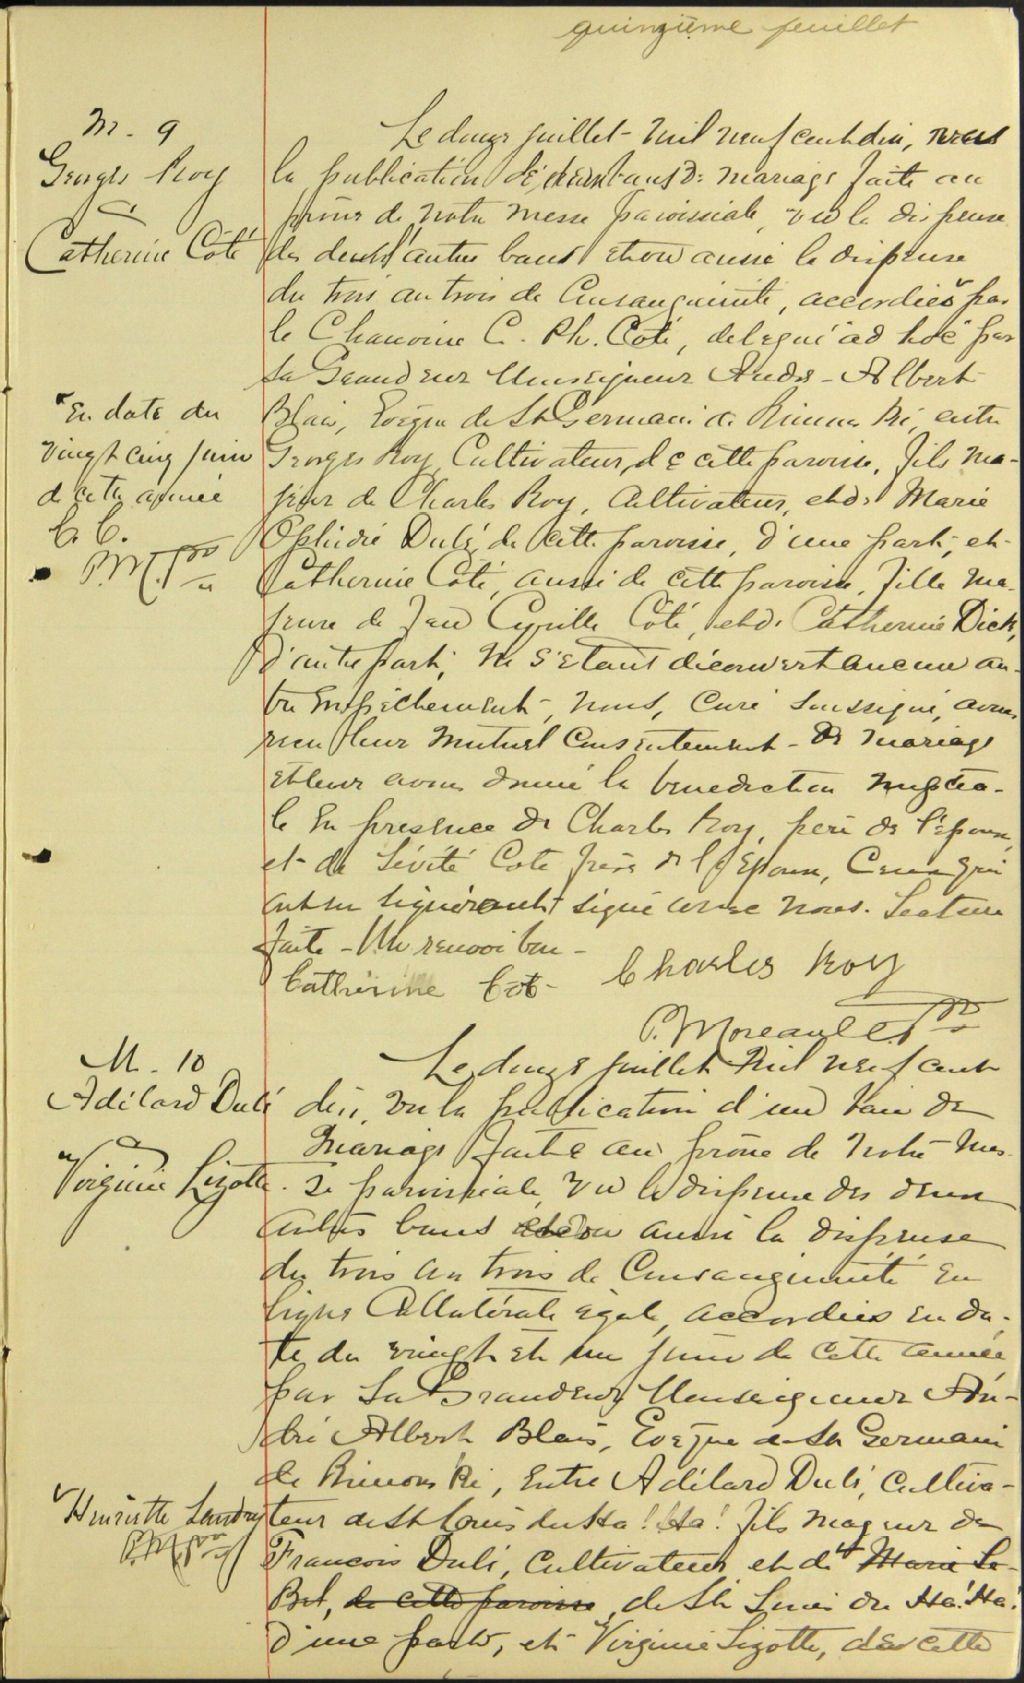 quinzième feuillet
M. 9
Georges Roy
&
Catherine Côté
Le douze juillet mil neuf cent dix, vu
la publication d' bans de mariage faite au
prône de notre Messe paroissiale, vu la dispense
des deux autres bans et vu aussi la dispense
du trois au trois de Consanguinité, accordées par
le Chanoine C. Ph. Coté, delegué "ad hoc" par
Sa Grandeur Monseigneur André-Albert
Blais, Evêque de St Germain de Rimouski, entre
Georges Roy, Cultivateur, de cette paroisse, fils ma-
jeur de Charles Roy, Cultivateur, et de Marie
Dubé de cette paroisse, d'une part, et
Catherine Coté, aussi de cette paroisse, fille ma-
jeure de Jean Cyrille Côté, et de Catherine Dick,
d'autre part; ne s'étant découvert aucun au-
tre Empêchement, nous, Curé soussigné, avons
recu leur mutuel Consentement de mariage
et leur avons donné la benediction nuptia-
le En presence de Charles Roy, père de l'époux,
et de Lévité Coté frère de l'Epouse, Ceux qui
ont su signer ont signé avec nous. Lecture
faite - Un renvoi bon -
En date du
vingt cinq juin
de cette année
C. C.
P.M. Ptre
Catherine Cot-
Charles Roy
P. Moreault Ptre
M. 10
Adélard Dubé
&
Virginie Lizotte
Le douze juillet Mil neuf cent
dix, vu la publication d'un ban de
Mariage faite au prône de notre Mes-
se paroissiale, vu la dispense des deux
autres bans et vu aussi la dispense
du trois au trois de Consanguinité en
ligne Collatérale égale, accordées en da-
te du vingt et un juin de cette année
par Sa Grandeur Monseigneur An-
dré Albert Blais, Evêque de St Germain
de Rimouski, Entre Adélard Dubé, Cultiva-
teur de St Louis du Ha! Ha! fils mageur de
François Dubé, Cultivateur et de Marie Le-
Bel, de cette paroisse, de St Louis du Ha! Ha!
d'une part, et Virginie Lizotte, de cette
Henriette Landry
P.M. Ptre